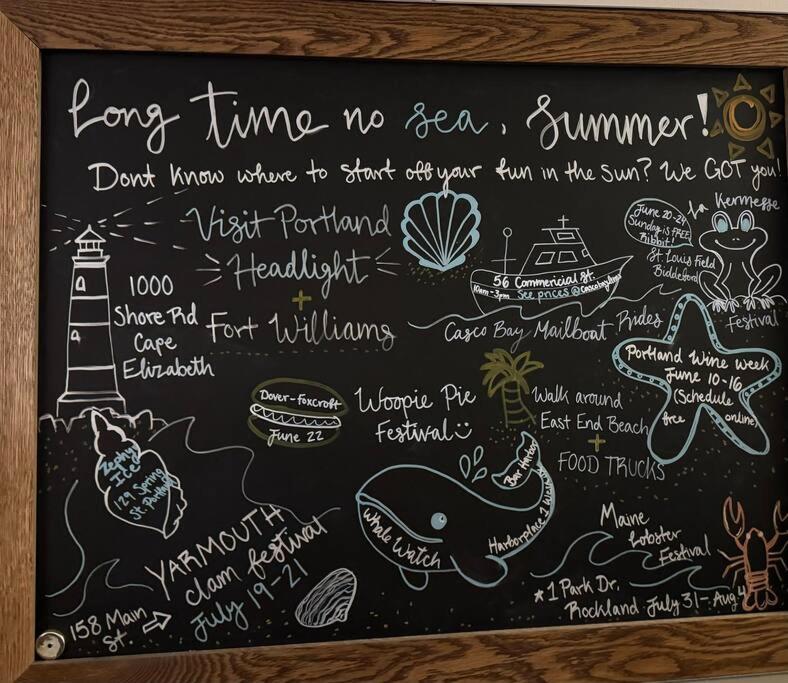 Long time no sea, Summer!
Dont know where to start off your fun in the sun? We GOT you!
Visit Portland
Headlight
+
Fort Williams
1000
Shore Rd
Cape
Elizabeth
56 Commercial St.
10am-3pm See prices @cascobaylines
Casco Bay Mailboat Rides
June 20-24
Sunday is FREE
Ribbit!
La Kermesse
St. Louis Field
Biddeford
Festival
Portland Wine Week
June 10-16
(Schedule
free online)
Dover-Foxcroft
June 22
Woopie Pie
Festival
Walk around
East End Beach
+
FOOD TRUCKS
Zephyr
Ice
129 Spring
St. Portland
YARMOUTH
clam festival
July 19-21
158 Main
St
Whale Watch
Harborplace 1 West St
Bar Harbor
Maine
Lobster
Festival
*1 Park Dr.
Rockland July 31-Aug 4